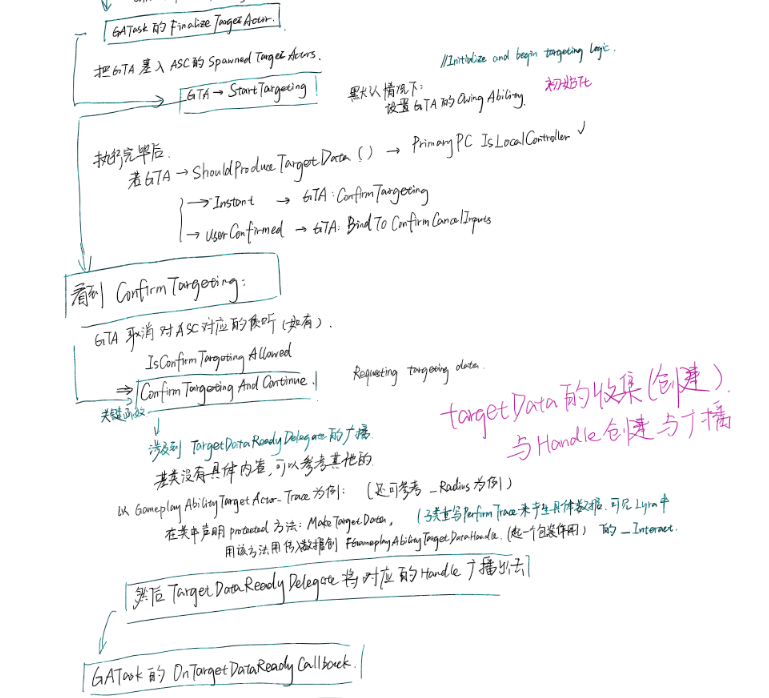 GATask 的 Finalize Target Actor.
把GTA 塞入 ASC的 Spawned Target Actors.
//Initialize and begin targeting logic.
GTA → Start Targeting
默认情况下:
设置GTA的Owing Ability.
初始化
执行完毕后.
若GTA → Should Produce Target Data () → Primary PC Is Local Controller ✓
→ Instant → GTA: Confirm Targeting
→ User Confirmed → GTA: Bind To Confirm Cancel Inputs
看到 Confirm Targeting:
GTA 取消对ASC对应的侦听 (如有).
Is Confirm Targeting Allowed
⇒ Confirm Targeting And Continue.
Requesting targeting data.
关键函数
targetData 的收集(创建)
与Handle创建与广播
涉及到 Target Data Ready Delegate的广播
基类没有具体内容,可以参考其他的
以 Gameplay Ability Target Actor_Trace 为例: (还可参考 _Radius 为例)
在其中声明 protected 方法: Make Target Data, (子类重写Perform Trace 来产生具体数据. 可见 Lyra中
用该方法用 数据创 FGameplay Ability Target Data Handle. (起一个包装作用) 的 _Interact.
然后 Target Data Ready Delegate 将对应的 Handle 广播出去
GATask 的 On Target Data Ready Callback.